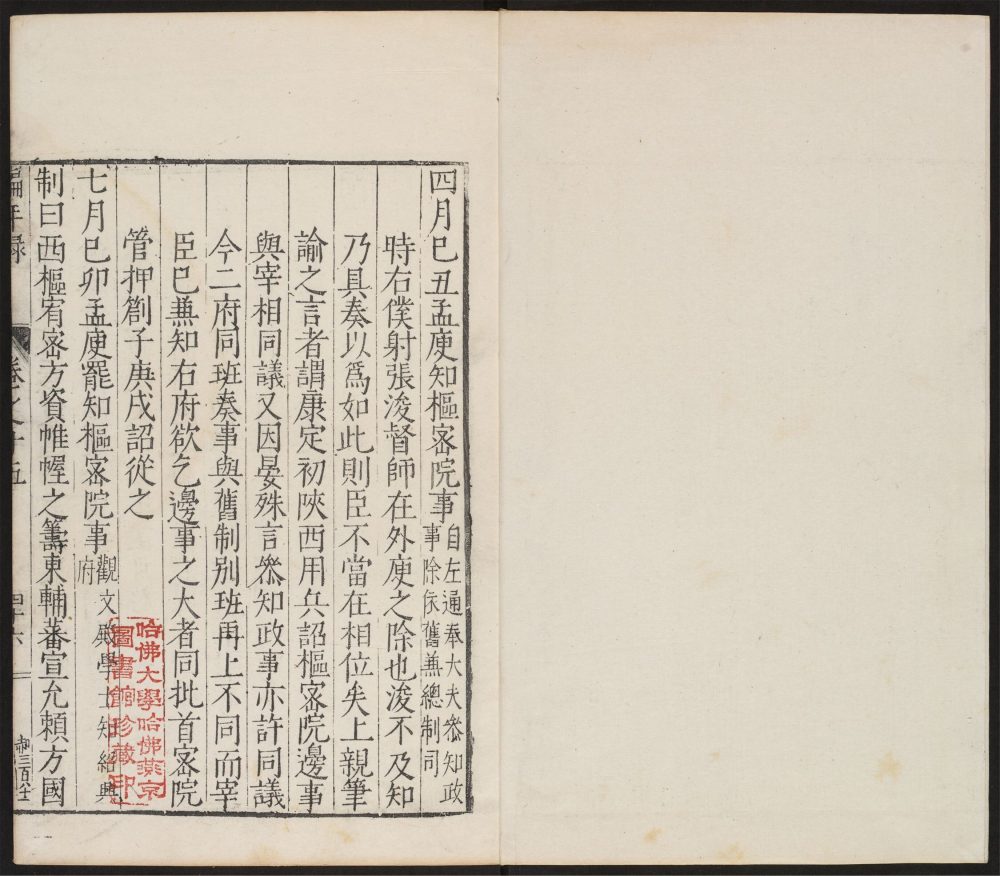 四月巳丑孟庾知樞宻院事自左通奉大夫叅知政
事除依舊兼總制司
時右僕射張浚督師在外庾之除也浚不及知
乃具奏以爲如此則臣不當在相位矣上親筆
諭之言者謂康定初陜西用兵詔樞宻院邊事
與宰相同議又因晏殊言叅知政事亦許同議
今二府同班奏事與舊制别班再上不同而宰
臣巳兼知右府欲乞邊事之大者同批首宻院
管押劄子庚戌詔從之
七月巳卯孟庾罷知樞宻院事觀文殿學士知紹興
府
制曰西樞宥宻方資帷幄之籌東輔蕃宣允頼方國
編年録
卷之十五
四十六
哈佛大學哈佛燕京
圖書館珍藏印